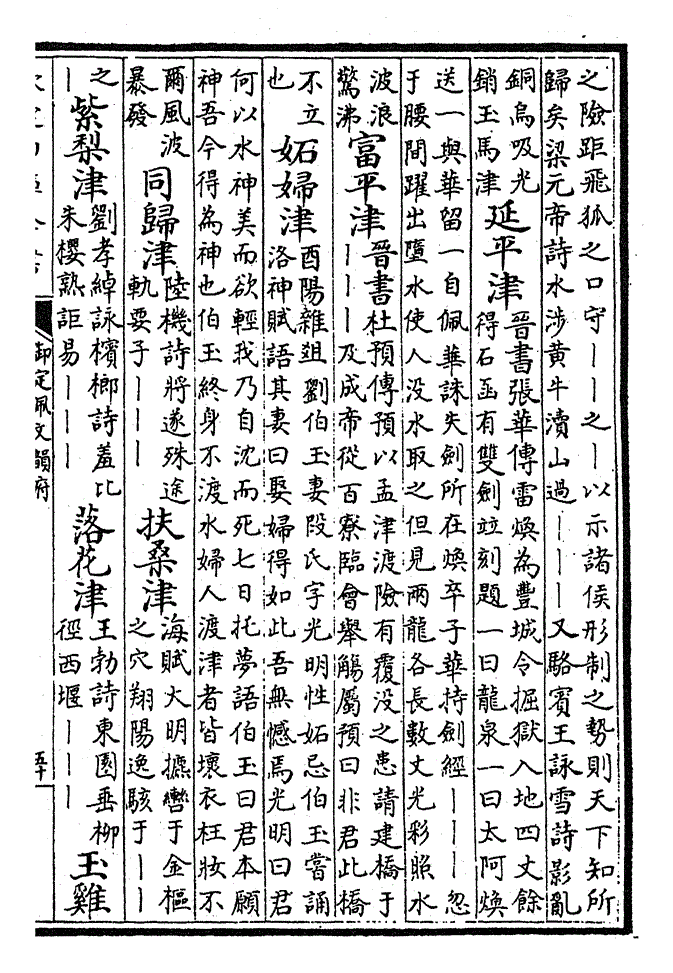 之險距飛狐之口守丨丨之丨以示諸侯形制之勢則天下知所
歸矣梁元帝詩水涉黄牛瀆山過丨丨丨又駱賓王詠雪詩影亂
銅烏吸光
銷玉馬津
延平津
晉書張華傳雷煥為豐城令掘獄入地四丈餘
得石函有雙劍竝刻題一曰龍泉一曰太阿煥
送一與華留一自佩華誅失劍所在煥卒子華持劍經丨丨丨忽
于腰間躍出墮水使人没水取之但見兩龍各長數丈光彩照水
波浪
驚沸
富平津
晉書杜預傳預以孟津渡險有覆没之患請建橋于
丨丨丨及成帝從百寮臨會舉觴屬預曰非君此橋
不立
也
妬婦津
酉陽雜俎劉伯玉妻段氏字光明性妬忌伯玉嘗誦
洛神賦語其妻曰娶婦得如此吾無憾焉光明曰君
何以水神美而欲輕我乃自沈而死七日托夢語伯玉曰君本願
神吾今得為神也伯玉終身不渡水婦人渡津者皆壞衣枉妝不
爾風波
暴發
同歸津
陸機詩將遂殊途
軌要子丨丨丨
扶桑津
海賦大明攇轡于金樞
之穴翔陽逸駭于丨丨
之
丨
紫梨津
劉孝綽詠檳榔詩羞比
朱櫻熟詎易丨丨丨
落花津
王勃詩東園垂柳
徑西堰丨丨丨
玉雞
御定佩文韻府
五十